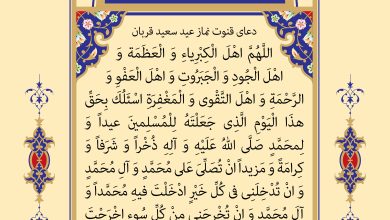 دعای قنوت نماز عید سعید قربان
اللّهُمَّ اهْلَ الْكِبْرِیاءِ وَ الْعَظَمَةِ وَ
اهْلَ الْجُودِ وَ الْجَبَرُوتِ وَ اهْلَ الْعَفْوِ وَ
الرَّحْمَةِ وَ اهْلَ التَّقْوی وَ الْمَغْفِرَةِ اسْئَلُكَ بِحَقِّ
هذَا الْیَوْمِ الَّذی جَعَلْتَهُ لِلْمُسْلِمینَ عیداً وَ
لِمحَمَّدٍ صَلَّی اللهُ عَلَیْهِ وَ آلِهِ ذُخْراً وَ شَرَفاً وَ
كِرامَةً وَ مَزیداً انْ تُصَلِّیَ عَلی مُحَمَّدٍ وَ آلِ مُحَمَّدٍ
وَ انْ تُدْخِلَنی فی كُلِّ خَیْرٍ ادْخَلْتَ فیهِ مُحَمَّداً وَ
آلَ مُحَمَّدٍ وَ انْ تُخْرِجَنی مِنْ كُلِّ سُوءٍ اخْرَجْتَ